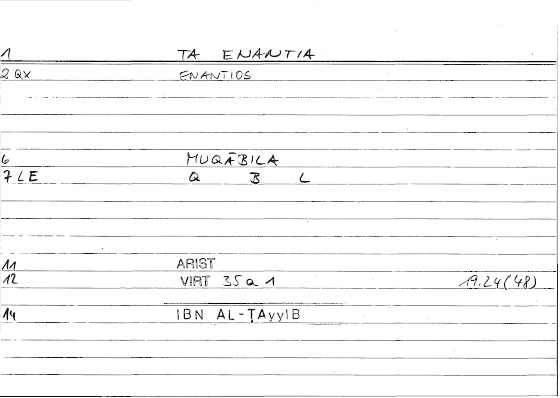 1 TA ENANTIA
2 QX ENANTIOS
6 MUQĀBILA
7 LE Q B L
11 ARIST
12 VIRT 35a1 19.24(48)
14 IBN AL-ṬAyyIB